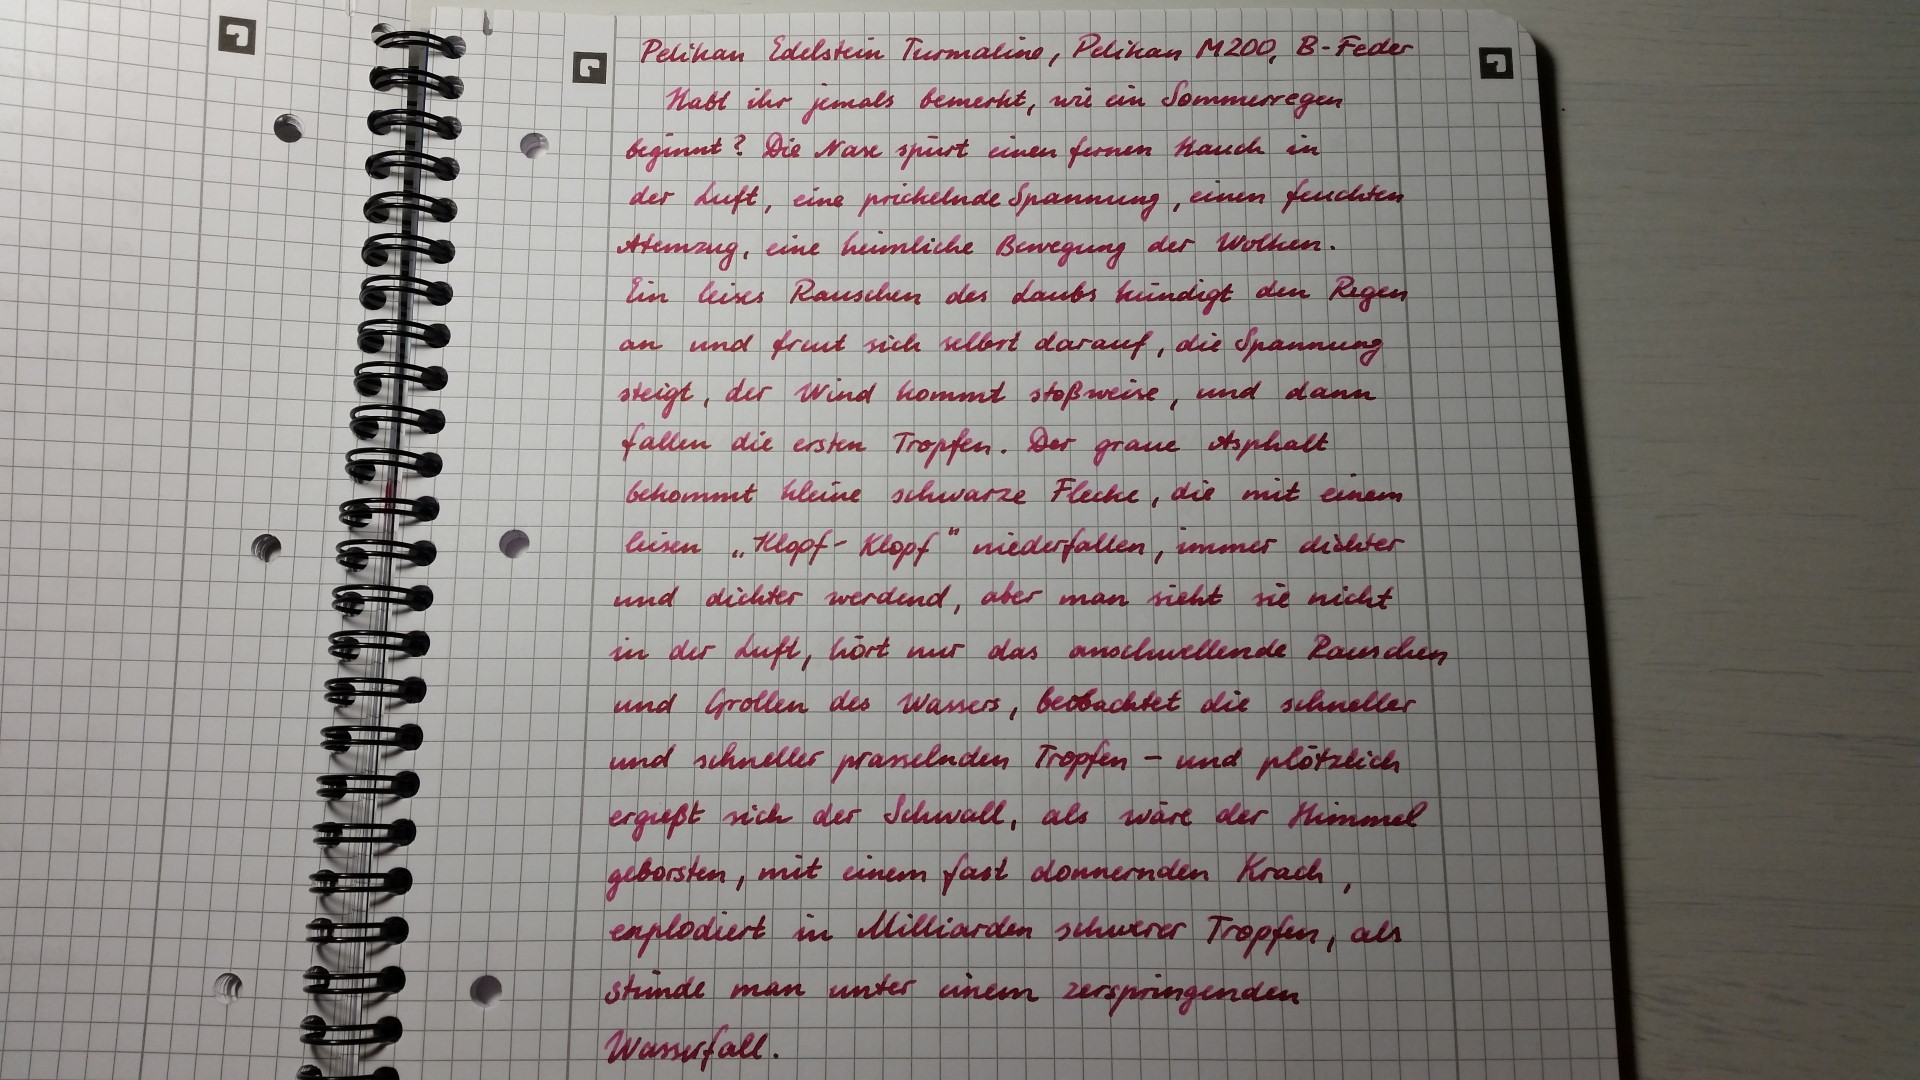 Pelikan Edelstein Turmaline, Pelikan M200, B-Feder
Habt ihr jemals bemerkt, wie ein Sommerregen
beginnt? Die Nase spürt einen fernen Hauch in
der Luft, eine prickelnde Spannung, einen feuchten
Atemzug, eine heimliche Bewegung der Wolken.
Ein leises Rauschen des Laubs kündigt den Regen
an und freut sich selbst darauf, die Spannung
steigt, der Wind kommt stoßweise, und dann
fallen die ersten Tropfen. Der graue Asphalt
bekommt kleine schwarze Flecke, die mit einem
leisen „Klopf-Klopf“ niederfallen, immer dichter
und dichter werdend, aber man sieht sie nicht
in der Luft, hört nur das anschwellende Rauschen
und Grollen des Wassers, beobachtet die schneller
und schneller prasselnden Tropfen – und plötzlich
ergießt sich der Schwall, als wäre der Himmel
geborsten, mit einem fast donnernden Krach,
explodiert in Milliarden schwerer Tropfen, als
stünde man unter einem zerspringenden
Wasserfall.